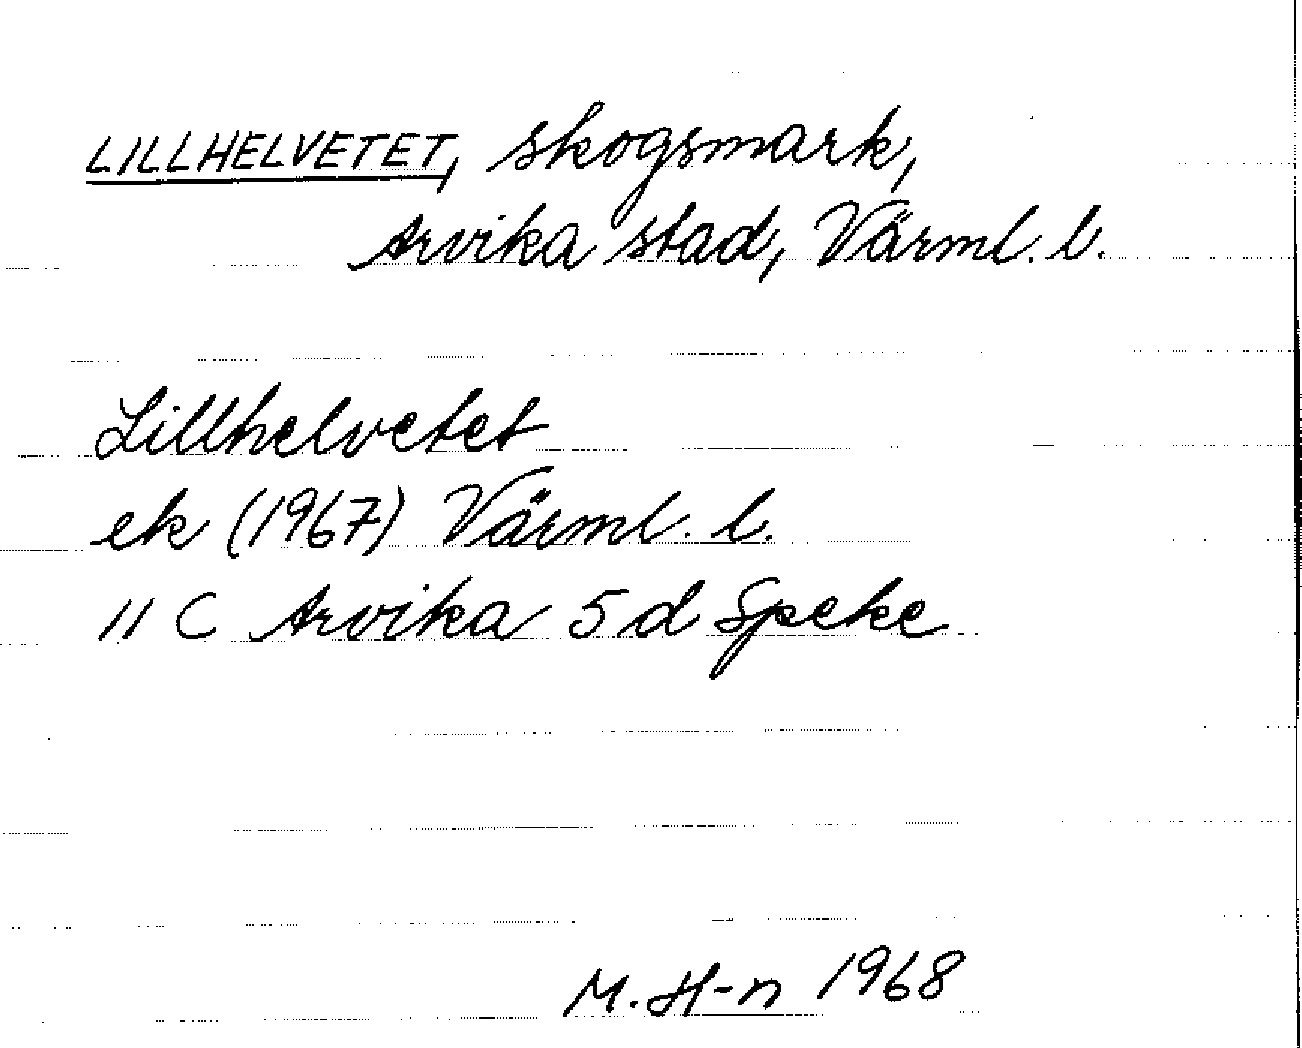 LILLHELVETET, skogsmark,
Arvika stad, Värml. l.
Lillhelvetet
ek (1967) Värml. l.
11 C Arvika 5 d Speke
M. H-n 1968